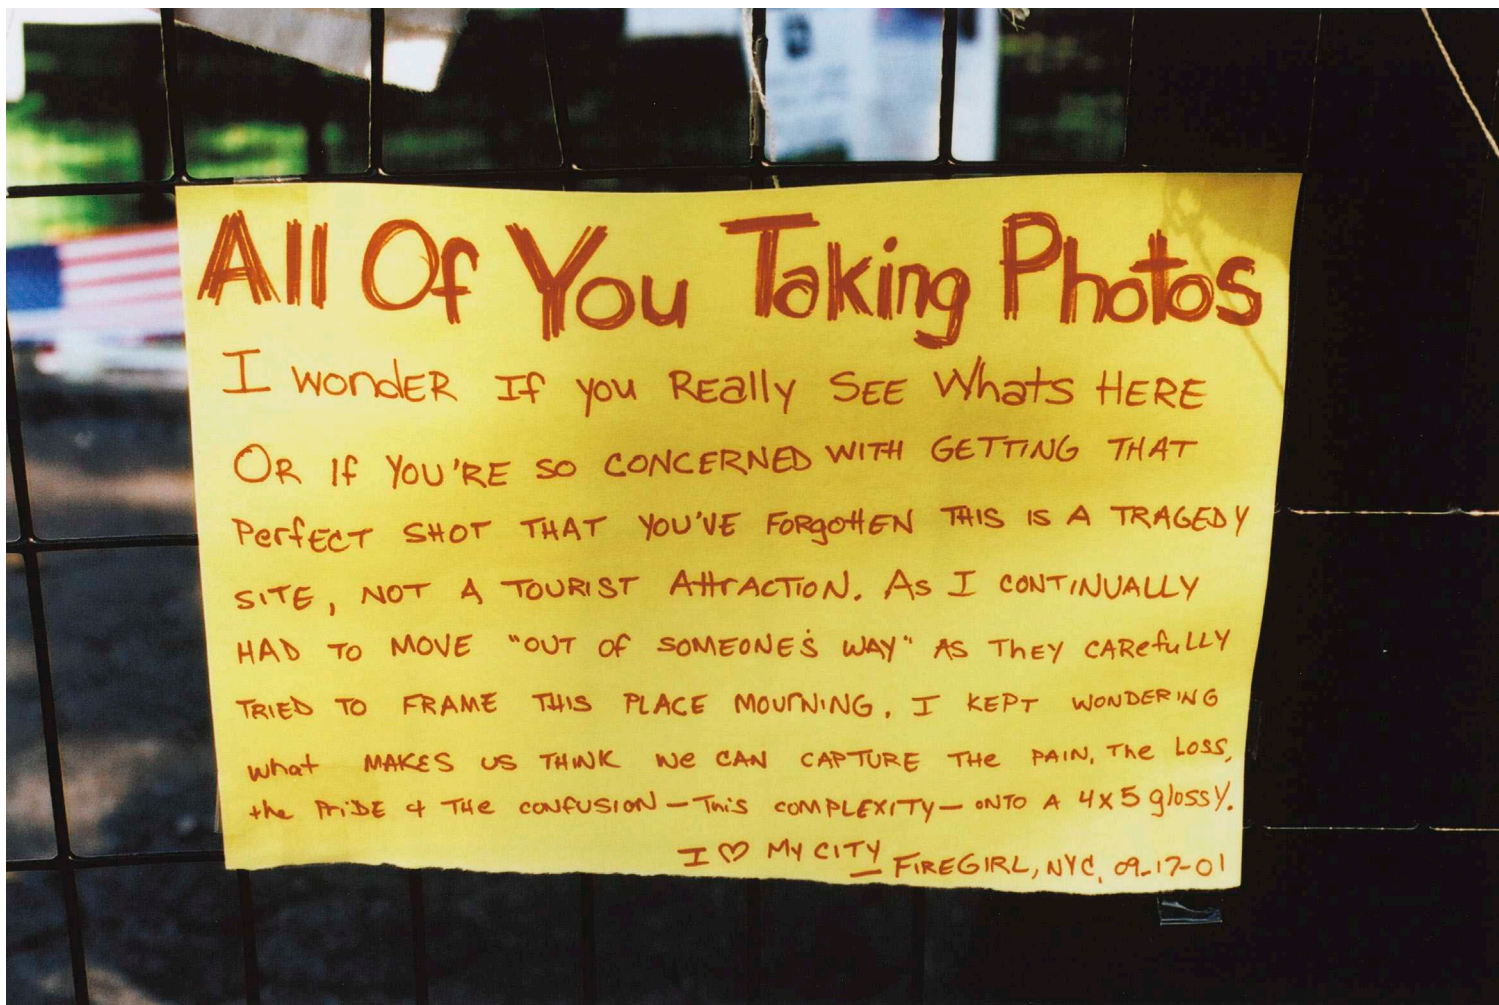 All Of You Taking Photos
I wondER If you REally SEE Whats HERE
OR If YOU'RE SO CONCERNED WITH GETTING THAT
PerfECT SHOT THAT YOU'VE FORgOttEN THIS IS A TRAGEDY
SITE, NOT A TOURIST AttrACTION. As I CONTINUALLY
HAD TO MOVE "OUT OF SOMEONE'S WAY" AS THEY CARefuLLY
TRIED TO FRAME THIS PLACE MOUrNING. I KEPT WONDERING
what MAKES US THINK We CAN CAPTURE THe PAIN, The Loss,
the PriDE & THE CONfUSION — This COMPLEXITY — ONTO A 4x5 glossy.
I ♡ MY CITY FIREGIRL, NYC, 09-17-01